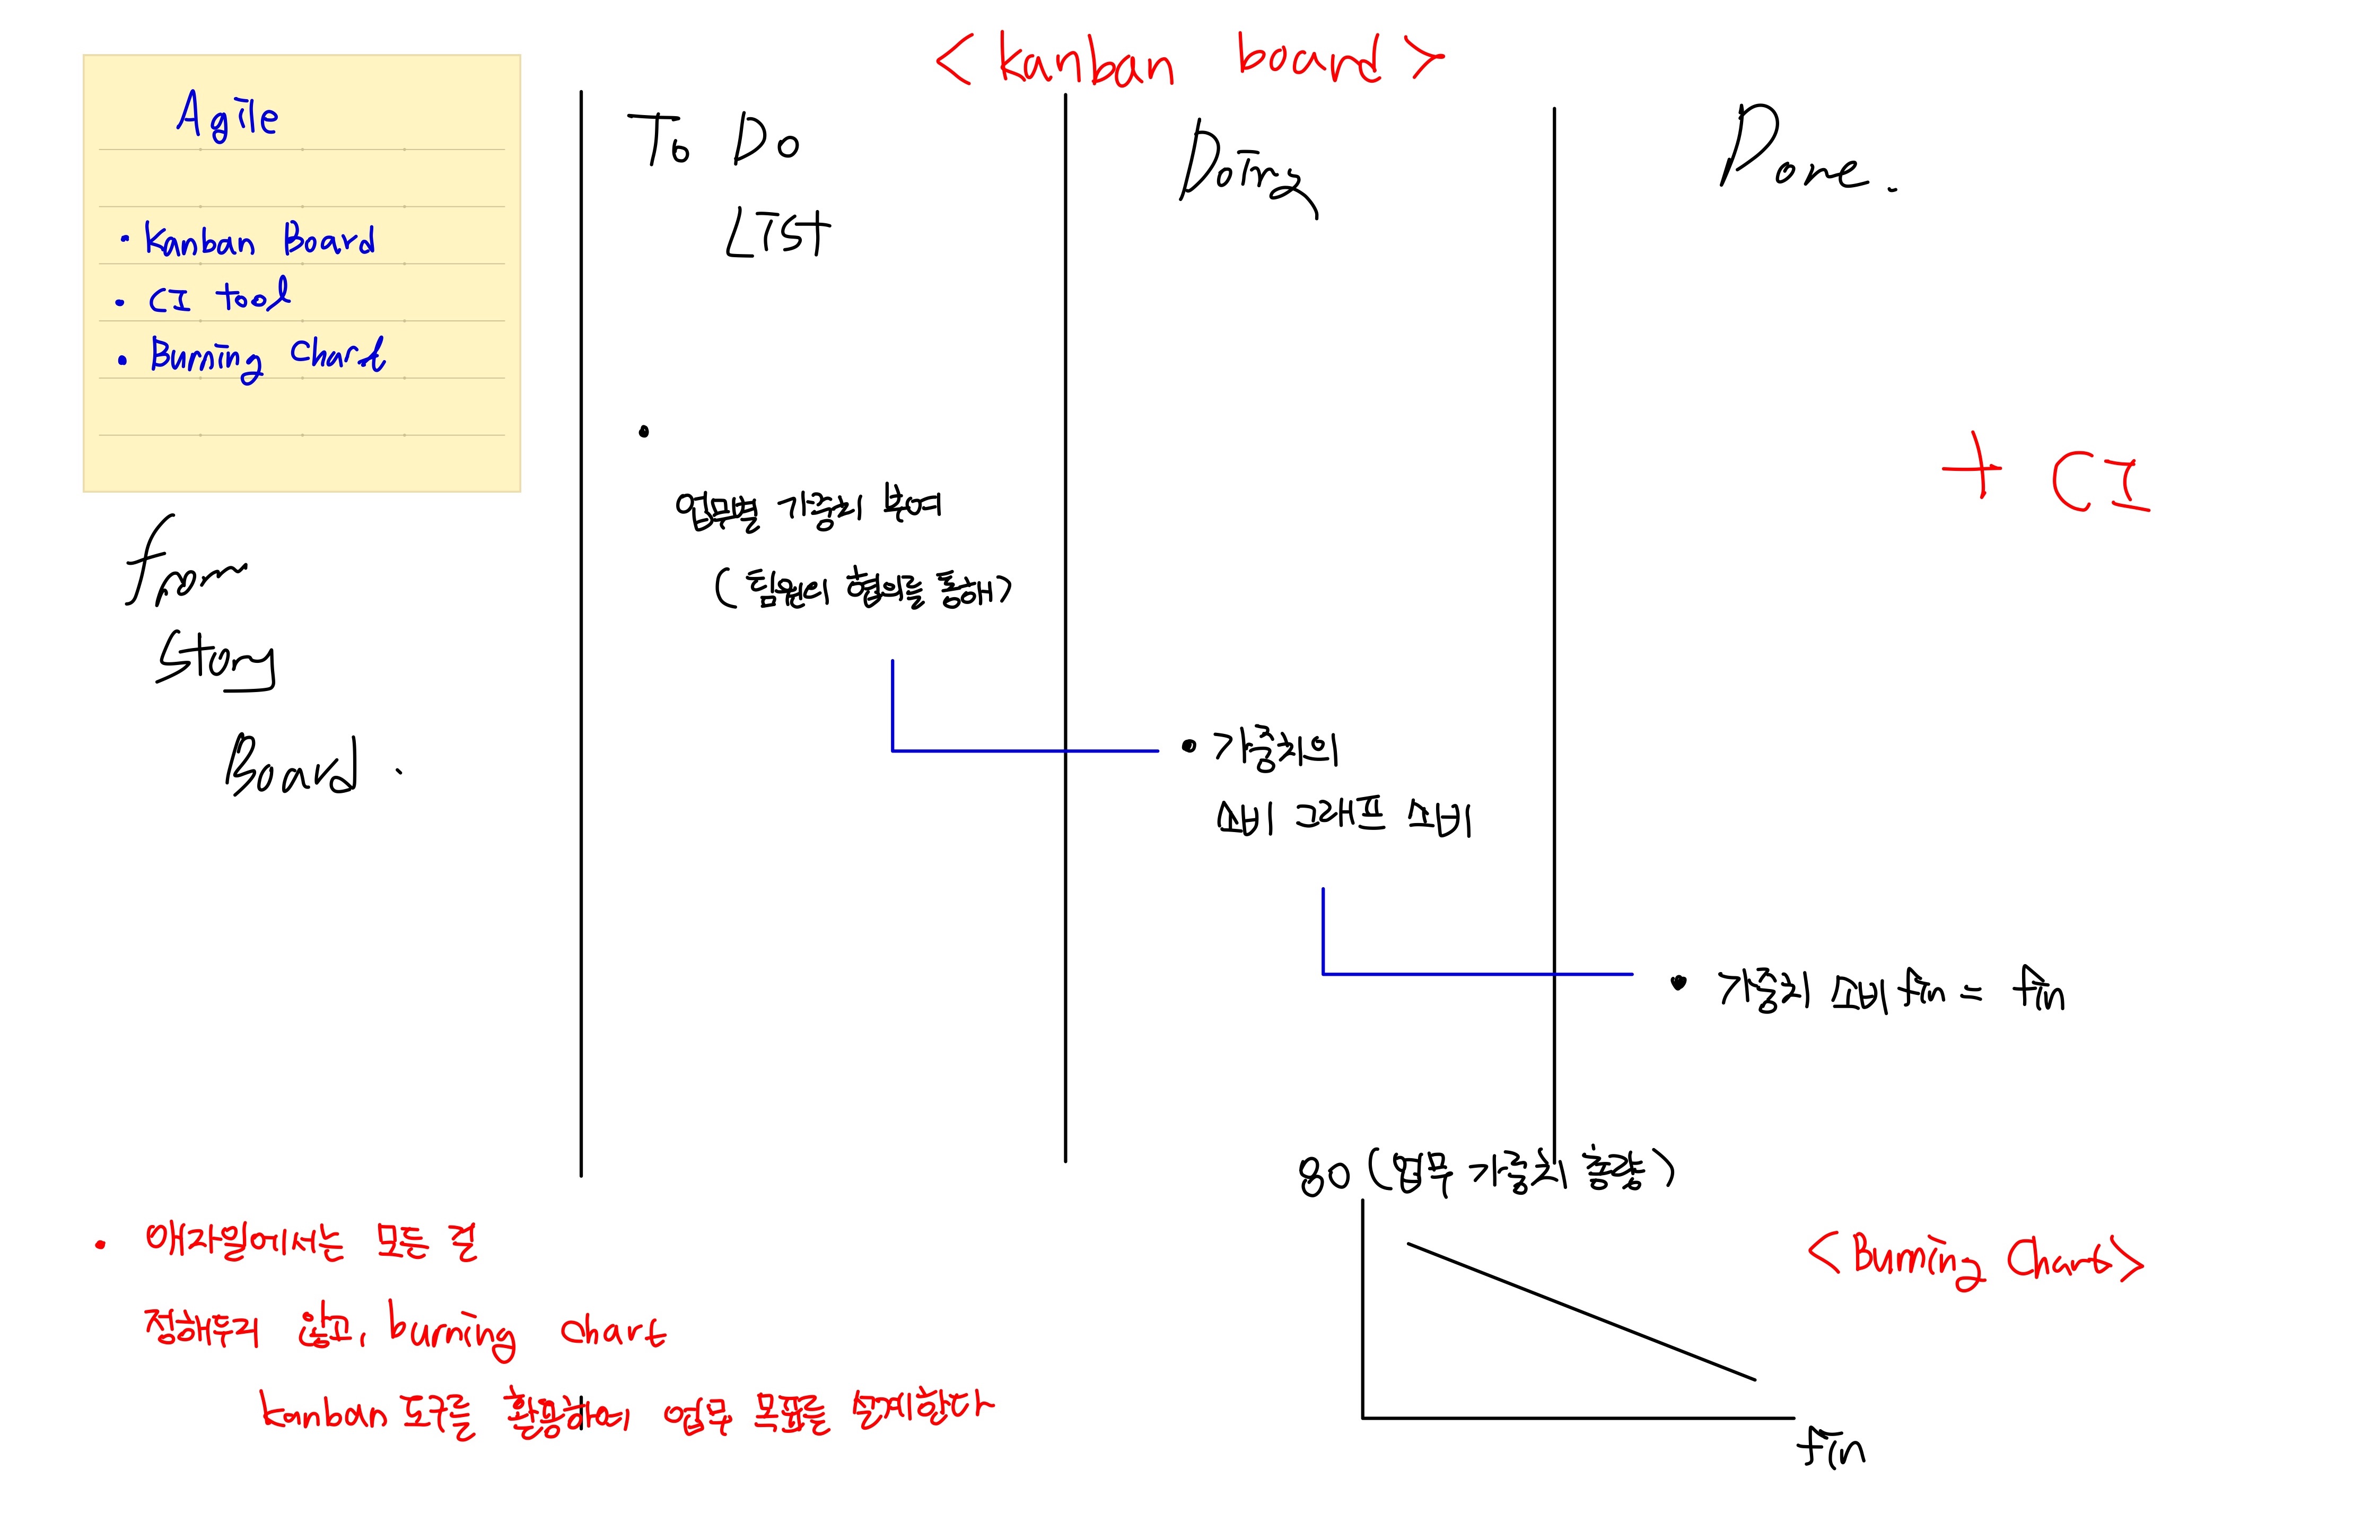 < Kanban board >
Agile
• Kanban Board
• CI tool
• Burning Chart
From
Story
Board.
To Do
List
•
업무별 가중치 부여
(팀원의 협의를 통해)
Doing
• 가중치의
소비 그래프 소비
Done.
+ CI
• 가중치 소비 fin = fin
80 (업무 가중치 총량)
<Burning Chart>
fin
• 애자일에서는 모든 걸
정해두지 않고, burning chart
kanban 도구를 활용하여 업무 목표를 설계한다